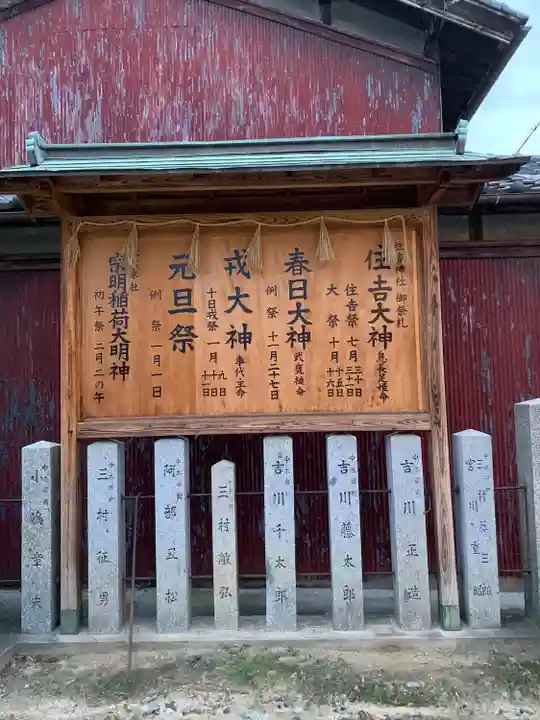 住吉神社 御祭礼
住吉大神
息長足姫命
住吉祭 七月 三十日 三十一日
大祭 十月 十五日 十六日
春日大神
武甕槌命
例祭 十一月二十七日
戎大神
事代主命
十日戎祭 一月 九日 十日 十一日
元旦祭
例祭 一月一日
末社
宗明稲荷大明神
初午祭 二月二の午
宮川重三郎
吉川正造
吉川藤太郎
吉川千太郎
三村敏弘
阿部里松
三村征男
小嶋幸夫